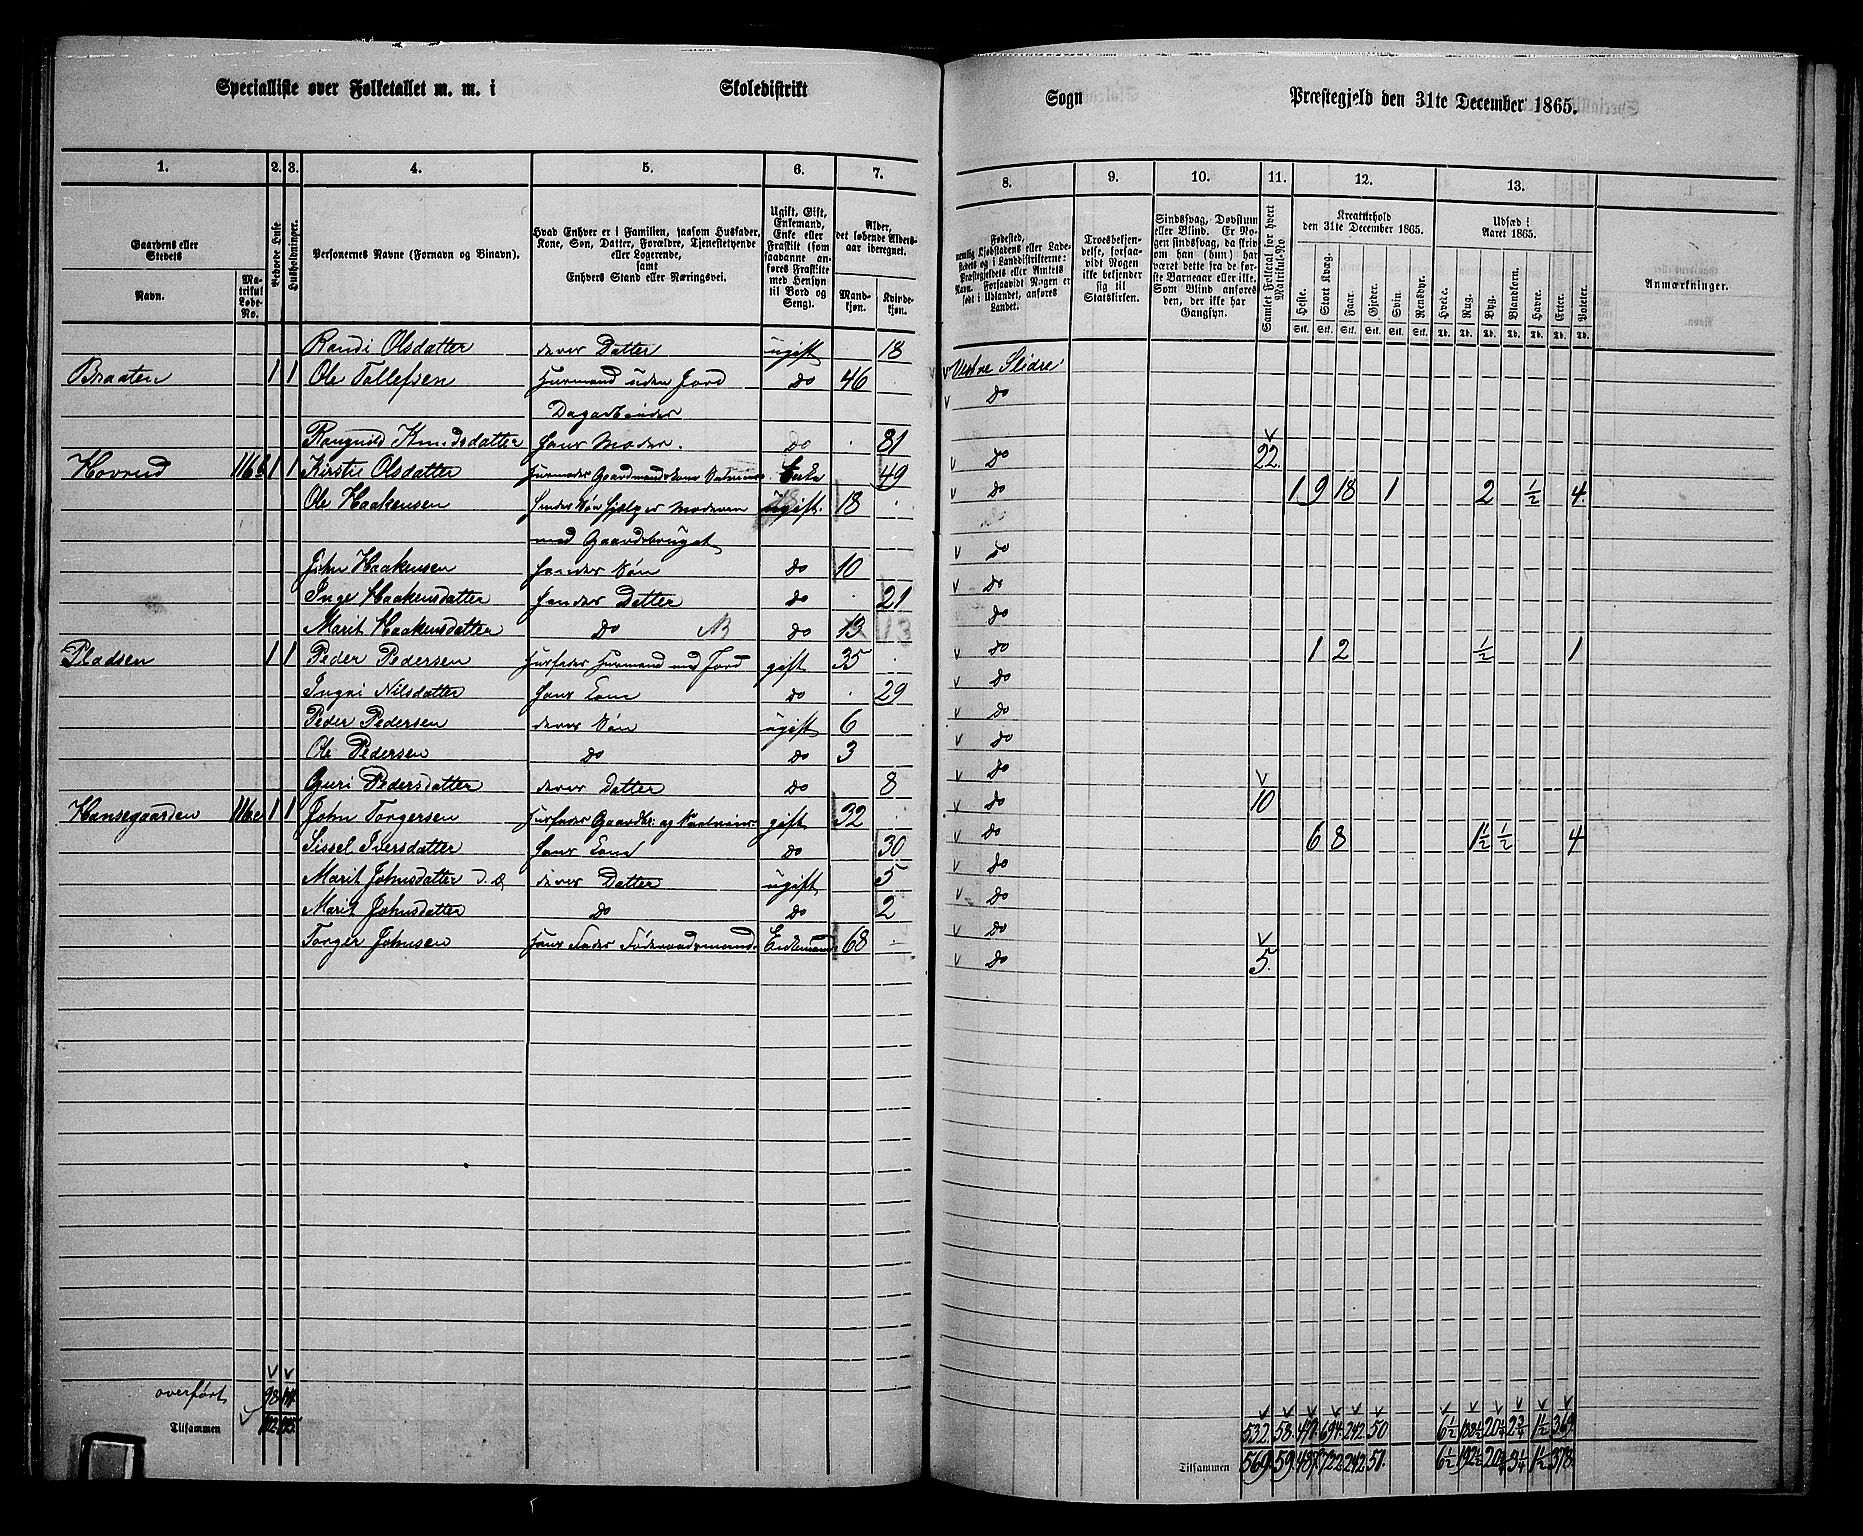 Specialliste over Folketallet m. m. i Skoledistrikt Sogn Præstegjeld den 31te December 1865.
1. 2. 3. 4. 5. 6. 7. 8. 9. 10. 11. 12. 13.
Gaardens eller Stedets
Navn.
Matrikul Løbe-No.
Beboede Huse
Husholdninger.
Personernes Navne (Fornavn og Binavn).
Hvad Enhver er i Familien, saasom Husfader, Kone, Søn, Datter, Forældre, Tjenestetyende eller Logerende, samt Enhvers Stand eller Næringsvei.
Ugift, Gift, Enkemand, Enke eller Fraskilt (som saadanne anføres Fraskilte med Hensyn til Bord og Seng).
Alder, det løbende Alders-aar iberegnet.
Mandkjøn. Kvindekjøn.
Fødested, nemlig Kjøbstadens eller Ladestedets eller i Landdistrikterne: Præstegjeldets eller Amtets Navn. Forsaavidt Nogen er født i Udlandet, anføres Landet.
Troesbekjendelse, forsaavidt Nogen ikke bekjender sig til Statskirken.
Sindssvag, Døvstum eller Blind. Er Nogen sindssvag, da skriv om han (hun) har været dette fra de første Barneaar eller ikke. Som Blind anføres den, der ikke har Gangsyn.
Samlet Folketal for hvert Matrikul-No.
Kreaturhold den 31te December 1865.
Heste. Stort Kvæg. Faar. Gjeder. Svin. Rensdyr.
Udsæd i Aaret 1865.
Hvede. Rug. Byg. Blandkorn. Havre. Erter. Poteter.
Anmærkninger.
Randi Olsdatter deres Datter ugift 18 Vestre Slidre
Braaten 1 1 Ole Tollefsen Husmand uden Jord do 46 do
Dagarbeider
Rangnild Knudsdatter hans Moder. do 81 do 22
Hovrud 116b 1 1 Kirstie Olsdatter Enke 49 do 1 9 18 1 2 ½ 4
Ole Haakensen hendes Søn hjelper Moderen ugift 18
med Gaardsbruget do
John Haakensen hendes Søn do 10 do
Inge Haakensdatter hendes Datter do 21 do
Marit Haakensdatter do do 13 13 do
Pladsen 1 1 Peder Pedersen Husfader Husmand med Jord gift 35 do 1 2 ½ 1
Ingri Nilsdatter hans Kone do 29 do
Peder Pedersen deres Søn ugift 6 do
Ole Pedersen do do 3 do
Guri Pedersdatter deres Datter do 8 do 10
Hansegaarden 116c 1 1 John Torgersen Husfader Gaardbr. og Selveier gift 32 do 6 8 1½ ½ 4
Sissel Iversdatter hans Kone do 30 do
Marit Johnsdatter d. æ deres Datter ugift 5 do
Marit Johnsdatter do do 2 do
Torger Johnsen hans Fader Føderaadsmand Enkemand 68 do 5
overført 98 532. 58. 694. 242. 50 6½ 1½ 369
Tilsammen 569 59 722 242 51. 6½ 1½ 378